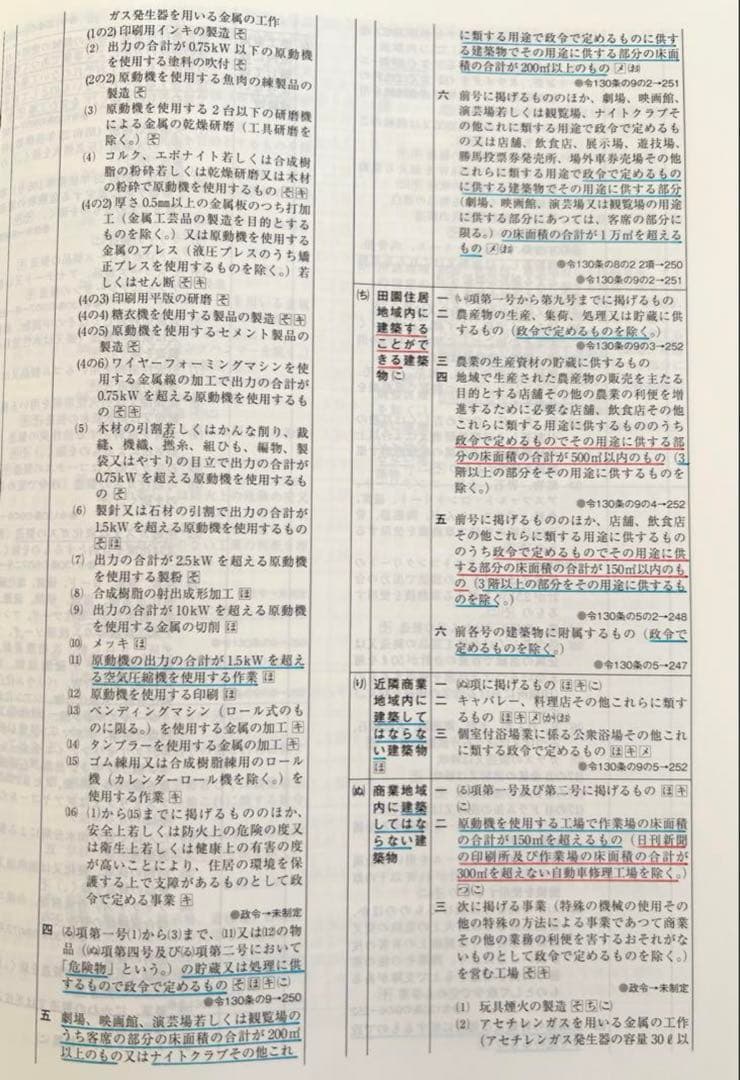 ガス発生器を用いる金属の工作
(1の2) 印刷用インキの製造 そ
(2) 出力の合計が0.75kW以下の原動機
を使用する塗料の吹付 そ
(2の2) 原動機を使用する魚肉の練製品の
製造 そ
(3) 原動機を使用する2台以下の研磨機
による金属の乾燥研磨（工具研磨を
除く。） そ
(4) コルク、エボナイト若しくは合成樹
脂の粉砕若しくは乾燥研磨又は木材
の粉砕で原動機を使用するもの そ キ
(4の2) 厚さ0.5mm以上の金属板のつち打加
工（金属工芸品の製造を目的とする
ものを除く。）又は原動機を使用する
金属のプレス（液圧プレスのうち矯
正プレスを使用するものを除く。）若
しくはせん断 そ キ
(4の3) 印刷用平版の研磨 そ
(4の4) 糖衣機を使用する製品の製造 そ キ
(4の5) 原動機を使用するセメント製品の
製造 そ
(4の6) ワイヤーフォーミングマシンを使
用する金属線の加工で出力の合計が
0.75kWを超える原動機を使用するも
の そ キ
(5) 木材の引割若しくはかんな削り、裁
縫、機織、撚糸、組ひも、編物、製
袋又はやすりの目立で出力の合計が
0.75kWを超える原動機を使用するも
の そ
(6) 製針又は石材の引割で出力の合計が
1.5kWを超える原動機を使用するもの
そ ほ
(7) 出力の合計が2.5kWを超える原動機
を使用する製粉 そ
(8) 合成樹脂の射出成形加工 ほ
(9) 出力の合計が10kWを超える原動機
を使用する金属の切削 ほ
(10) メッキ ほ
(11) 原動機の出力の合計が1.5kWを超え
る空気圧縮機を使用する作業 ほ
(12) 原動機を使用する印刷 ほ
(13) ベンディングマシン（ロール式のも
のに限る。）を使用する金属の加工 キ
(14) タンブラーを使用する金属の加工 キ
(15) ゴム練用又は合成樹脂練用のロール
機（カレンダーロール機を除く。）を
使用する作業 キ
(16) (1)から(15)までに掲げるもののほか、
安全上若しくは防火上の危険の度又
は衛生上若しくは健康上の有害の度
が高いことにより、住居の環境を保
護する上で支障があるものとして政
令で定める事業 キ
●政令→未制定
四 (る)項第一号(1)から(3)まで、(11)又は(12)の物
品（(ぬ)項第四号及び(る)項第二号において
「危険物」という。）の貯蔵又は処理に供
するもので政令で定めるもの そ ほ キ に
●令130条の9→250
五 劇場、映画館、演芸場若しくは観覧場の
うち客席の部分の床面積の合計が200㎡
以上のもの又はナイトクラブその他これ
に類する用途で政令で定めるものに供す
る建築物でその用途に供する部分の床面
積の合計が200㎡以上のもの メ お
●令130条の9の2→251
六 前号に掲げるもののほか、劇場、映画館、
演芸場若しくは観覧場、ナイトクラブそ
の他これに類する用途で政令で定めるも
の又は店舗、飲食店、展示場、遊技場、
勝馬投票券発売所、場外車券売場その他
これらに類する用途で政令で定めるもの
に供する建築物でその用途に供する部分
（劇場、映画館、演芸場又は観覧場の用途
に供する部分にあつては、客席の部分に
限る。）の床面積の合計が1万㎡を超える
もの メ お
●令130条の8の2 2項→250
●令130条の9の2→251
(ち) 田園住居
地域内に
建築する
ことがで
きる建築
物 に
一 (い)項第一号から第九号までに掲げるもの
二 農産物の生産、集荷、処理又は貯蔵に供
するもの（政令で定めるものを除く。）
●令130条の9の3→252
三 農業の生産資材の貯蔵に供するもの
四 地域で生産された農産物の販売を主たる
目的とする店舗その他の農業の利便を増
進するために必要な店舗、飲食店その他こ
れらに類する用途に供するもののうち
政令で定めるものでその用途に供する部
分の床面積の合計が500㎡以内のもの（3
階以上の部分をその用途に供するものを
除く。）
●令130条の9の4→252
五 前号に掲げるもののほか、店舗、飲食店
その他これらに類する用途に供するもの
のうち政令で定めるものでその用途に供
する部分の床面積の合計が150㎡以内のも
の（3階以上の部分をその用途に供するも
のを除く。）
●令130条の5の2→248
六 前各号の建築物に附属するもの（政令で
定めるものを除く。）
●令130条の5→247
(り) 近隣商業
地域内に
建築して
はならな
い建築物
ほ
一 (ぬ)項に掲げるもの ほ キ に
二 キャバレー、料理店その他これらに類す
るもの ほ キ メ か お
三 個室付浴場業に係る公衆浴場その他これ
に類する政令で定めるもの ほ キ メ
●令130条の9の5→252
(ぬ) 商業地域
内に建築
してはな
らない建
築物
一 (る)項第一号及び第二号に掲げるもの ほ キ
に
二 原動機を使用する工場で作業場の床面積
の合計が150㎡を超えるもの（日刊新聞
の印刷所及び作業場の床面積の合計が
300㎡を超えない自動車修理工場を除く。）
つ に
三 次に掲げる事業（特殊の機械の使用その
他の特殊の方法による事業であつて商業
その他の業務の利便を害するおそれがな
いものとして政令で定めるものを除く。）
を営む工場 そ キ
●政令→未制定
(1) 玩具煙火の製造 そ ち に
(2) アセチレンガスを用いる金属の工作
（アセチレンガス発生器の容量30ℓ以